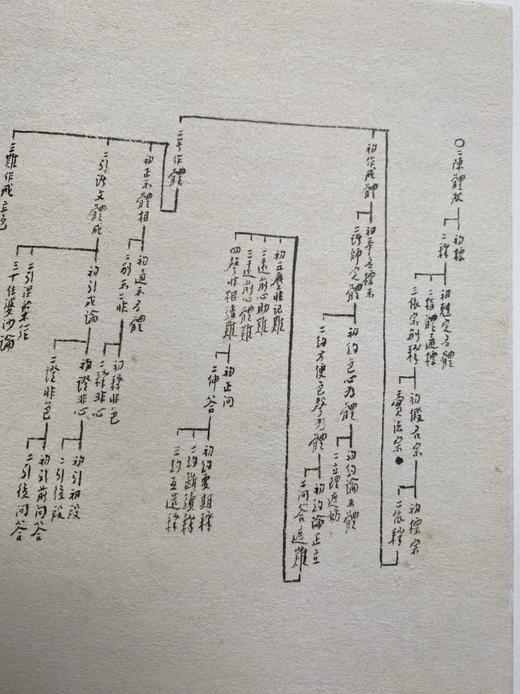 〇二陳體狀
初標
二釋
初軽定名體
二指體通標
二依宗別釋
初假名宗
二實法宗
初標宗
二依釋
初作戒體
初牽名標示
二諸師定體
初約色心為體
二約方便色聲為體
初約論示體
二立理遮妨
初約論正立
二問答遮難
初三廣非記難
二違前心助難
三違前心體難
四發非相違難
初正問
二伸答
初約要期釋
二約斷續釋
三約互造釋
二無作體
初正示體相
二引諸文體成
三難作戒立色
初通示名體
二別示二非
初釋非色
二釋非心
初引成論
初證非心
二證非色
初引初段
二引後段
初引前問答
二引後問答
二引涅槃經
三十住婆沙論